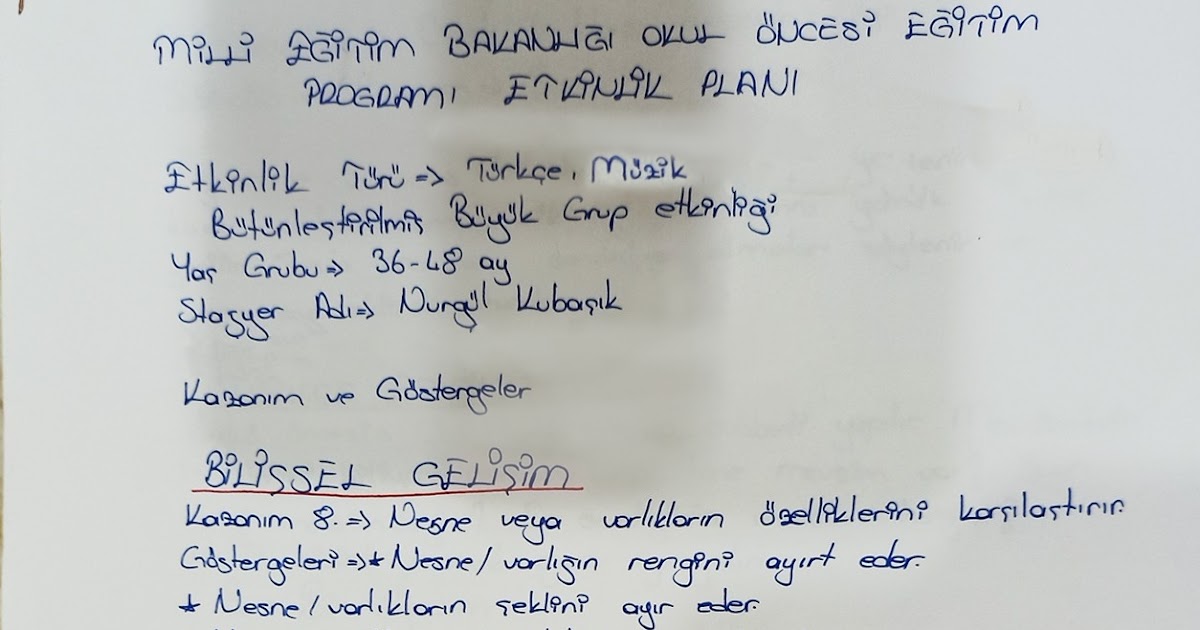 MİLLİ EĞİTİM BAKANLIĞI OKUL ÖNCESİ EĞİTİM
PROGRAMI ETKİNLİK PLANI
Etkinlik Türü => Türkçe, Müzik
Bütünleştirilmiş Büyük Grup etkinliği
Yaş Grubu => 36-48 ay
Stajyer Adı => Nurgül Kubaşık
Kazanım ve Göstergeler
BİLİŞSEL GELİŞİM
Kazanım 8. => Nesne veya varlıkların özelliklerini karşılaştırır.
Göstergeleri => * Nesne/varlığın rengini ayırt eder.
* Nesne/varlıkların şeklini ayır eder.